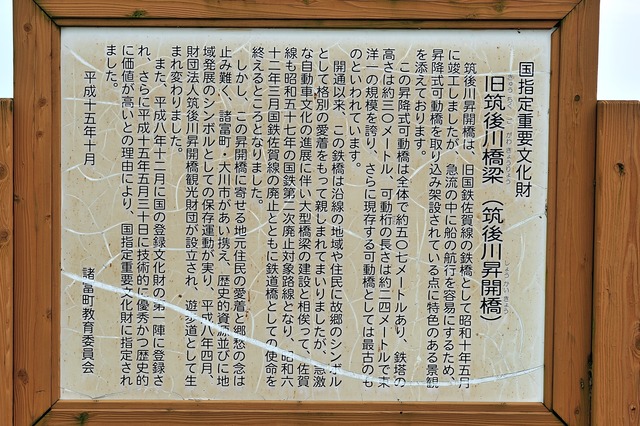 国指定重要文化財
旧筑後川橋梁（筑後川昇開橋）
きゅうちくごがわきょうりょう
しょうかいきょう
筑後川昇開橋は、旧国鉄佐賀線の鉄橋として昭和十年五月
に竣工しましたが、急流の中に船の航行を容易にするため、
昇降式可動橋を取り込み架設されている点に特色のある景観
を添えております。
この昇降式可動橋は全体で約五〇七メートルあり、鉄塔の
高さは約三〇メートル、可動桁の長さは約二四メートルで東
洋一の規模を誇り、さらに現存する可動橋としては最古のも
のといわれています。
開通以来、この鉄橋は沿線の地域や住民に故郷のシンボル
として格別の愛着をもって親しまれてまいりましたが、急激
な自動車文化の進展に伴い大型橋梁の建設と相俟って、佐賀
線も昭和五十七年の国鉄第二次廃止対象路線となり、昭和六
十二年三月国鉄佐賀線の廃止とともに鉄道橋としての使命を
終えるところとなりました。
しかし、この昇開橋に寄せる地元住民の愛着と郷愁の念は
止み難く、諸富町・大川市があい携え、歴史的資源並びに地
域発展のシンボルとしての保存運動が実り、平成八年四月、
財団法人筑後川昇開橋観光財団が設立され、遊歩道として生
まれ変わりました。
また、平成八年十二月に国の登録文化財の第一陣に登録さ
れ、さらに平成十五年五月三十日に技術的に優秀かつ歴史的
に価値が高いとの理由により、国指定重要文化財に指定され
ました。
平成十五年十月
諸富町教育委員会